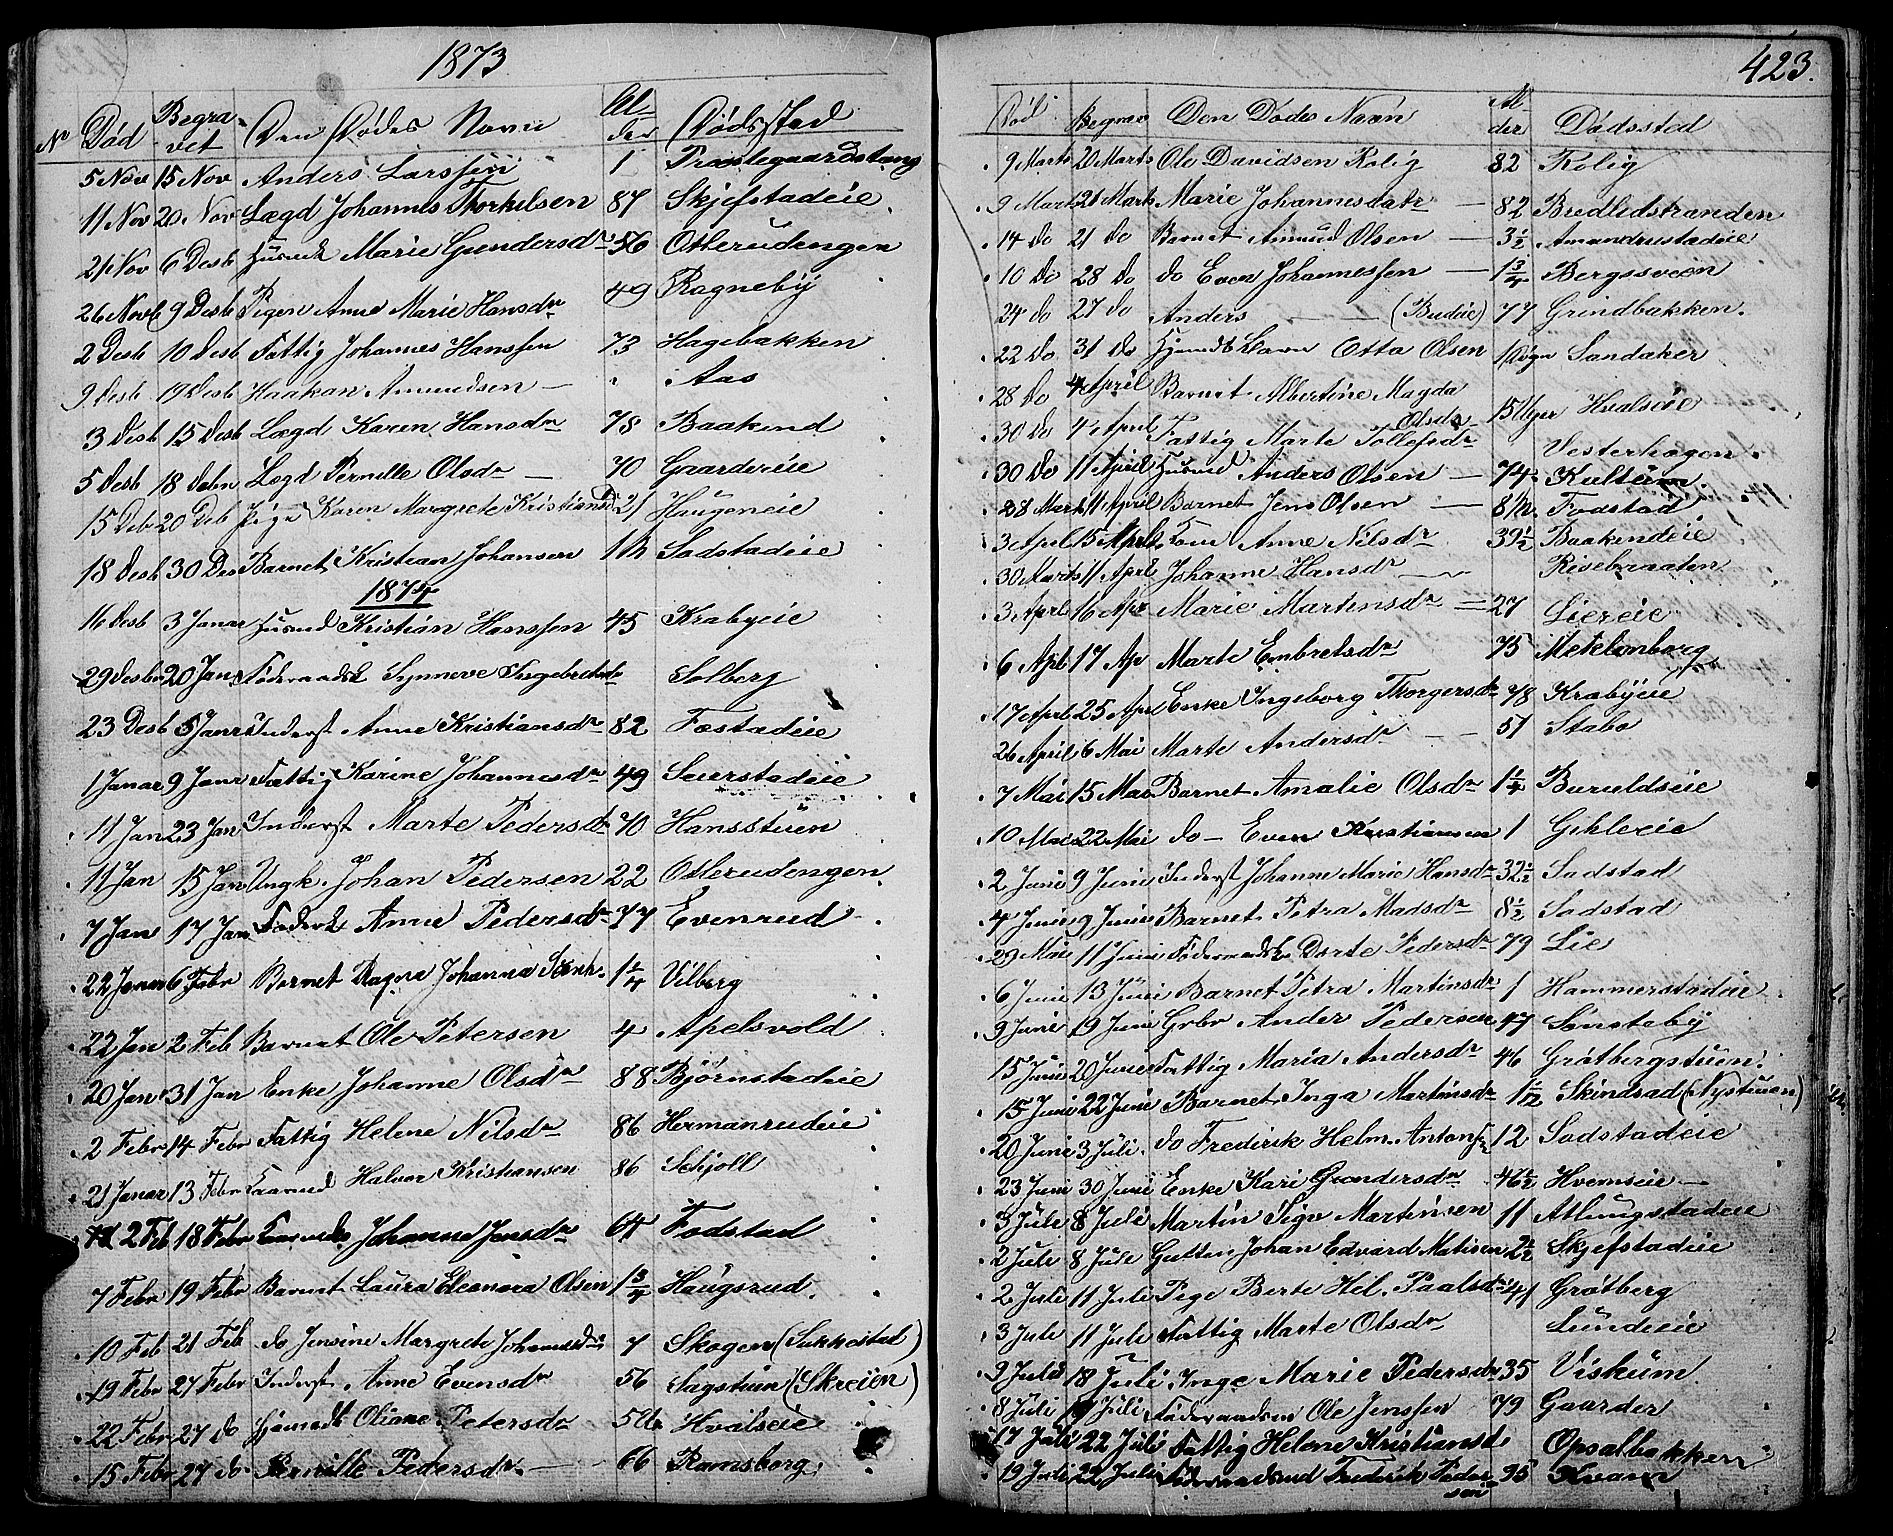 1873
No Død Begravet Den Dødes Navn Alder Dødsstad
5 Nov 15 Nov Anders Larssen 1 Præstegaardstang
11 Nov 20 Nov Lægd Johannes Thorkilsen 87 Skjefstadeie
21 Nov 6 Desb Husmd Marie Gundersdr 56 Otlerudengen
26 Novb 9 Desb Pigen Anne Marie Hansdr 49 Ragneby
2 Desb 10 Desb Fattig Johannes Hanssen 73 Hagebakken
9 Desb 19 Desb Haakan Amundsen — Aas
3 Desb 15 Desb Lægd Karen Hansdr 78 Baakend
5 Desb 18 Debn Lægd Pernille Olsdr — 70 Gaardereie
15 Deb 20 Deb Pige Karen Margrete Kristiansd 21 Haugeneie
18 Desb 30 Des Barnet Kristian Johansen Sadstadeie
1874
16 Desb 3 Janar Husmd Kristian Hanssen 45 Krabyeie
29 Desbr 20 Jan Føderaadsk Synneve Ingebretsdr Solberg
23 Desb 5 Janr Inderst Anne Kristiansdr 82 Fæstadeie
1 Janar 9 Janr Fattig Karine Johannesdr 49 Seierstadeie
11 Jan 23 Jan Inderst Marte Pedersdr 70 Hansstuen
11 Jan 15 Jan Ungk. Johan Pedersen 22 Otlerudengen
7 Jan 17 Jan Føderk Anne Pedersdr 77 Evenrud
22 Janar 6 Febr Barnet Ragna Johanna 1 1/4 Vilberg
22 Jan 2 Feb Barnet Ole Petersen 4 Apelsvold
20 Jan 31 Jan Enke Johanne Olsdr 88 Bjørnstadeie
2 Febr 14 Febr Fattig Helene Nilsdr 86 Hermanrudeie
21 Janar 13 Febr Gaarmd Halvor Kristiansen 86 Schjoll
2 Feb 18 Febr Johanne Jensdr 64 Fodstad
7 Febr 19 Febr Barnet Laura Eleonora Olsen 1 3/4 Haugsrud
10 Feb 21 Feb do Jensine Margrete Johannesdr 7 Skogen (Sukkestad)
19 Febr 27 Febr Inderst Anne Evensdr 56 Sagstuen (Skreien)
22 Febr 27 do Hjemedb Oliane Petersdr Hvalseie
15 Febr 27 do Pernille Pedersdr — 66 Ramsborg
423.
Død Begrav Den Dødes Navn Alder Dødssted
9 Marts 20 Marts Ole Davidsen Kolig 82 Kolig
9 Mart 21 Marts Marie Johannesdatr — 82 Bredlidstranden
14 do 21 do Barnet Amund Olsen — 3 1/2 Amundrustadeie
10 do 28 do do Even Johannessen — 1 3/4 Bergssveen
24 do 27 do Anders — (Budeie) 77 Grindbakken.
22 do 31 do Hjemdb Barn Otto Olsen 1 Døgn Sandaker
28 do 4 April Barnet Albertine Magda
Olsdr 15 Uger Hvalseie
30 do 4 April Fattig Marte Tollefsdr Vesterhagen
30 do 11 April Husmd Anders Olsen — 74 Kultum
28 Mart 11 April Barnet Jens Olsen — Fodstad
3 April 15 April Anne Nilsdr 39 1/2 Baakendeie
30 Marts 11 April Johanne Hansdr — Risebraaten
3 April 16 Apr Marie Martinsdr — 27 Liereie
6 Apl 17 Ap Marte Embretsdr 75 Meklenborg
17 April 25 Apl Enke Ingeborg Thorgersdr 78 Krabyeie
26 April 6 Mai Marte Andersdr — — 51 Stabo
7 Mai 15 Mai Barnet Amalie Olsdr 1 1/4 Buruldseie
10 Mai 22 Mai do — Even Kristiansen 1 Gihleeie
2 Juni 9 Juni Inderst Johanne Marie Hansdr 32 1/2 Sadstad
4 Juni 9 Juni Barnet Petra Madsdr 8 1/2 Sadstad
29 Mai 11 Juni Føderaadsk Dorte Pedersdr 79 Lie
6 Juni 13 Juni Barnet Petra Martinsdr 1 Hammerstadeie
9 Juni 19 Juni Grbr Ander Pedersen 47 Sønsteby
15 Juni 20 Juni Fattig Maria Andersdr 46 Grøtbergstuen
15 Juni 22 Juni Barnet Inga Martinsdr 1 1/12 Skindsad (Nystuan)
20 Juni 3 Juli do Fredrik Helm. Antons 12 Sadstadeie
23 Juni 30 Juni Enke Kari Gundersdr 46 1/2 Hvemseie —
3 Juli 8 Juli Martin Sigv Martinsen 11 Atlungstadeie
2 Juli 8 Juli Gutten Johan Edvard Matisen 2 1/2 Skjefstadeie
2 Juli 11 Juli Pige Berte Hel. Paalsdr 41 Grøtberg
3 Juli 11 Juli Fattig Marte Olsdr Lundeeie
9 Juli 18 Juli Inge Marie Pedersdr 35 Viskum
8 Juli Juli Føderaadsm Ole Jenssen 79 Gaarder
17 Juli 22 Juli Fattig Helene Kristiansd Opsalbakken
19 Juli 22 Juli Føderaadsmd Fredrik Peder
sen 95 Kvarn